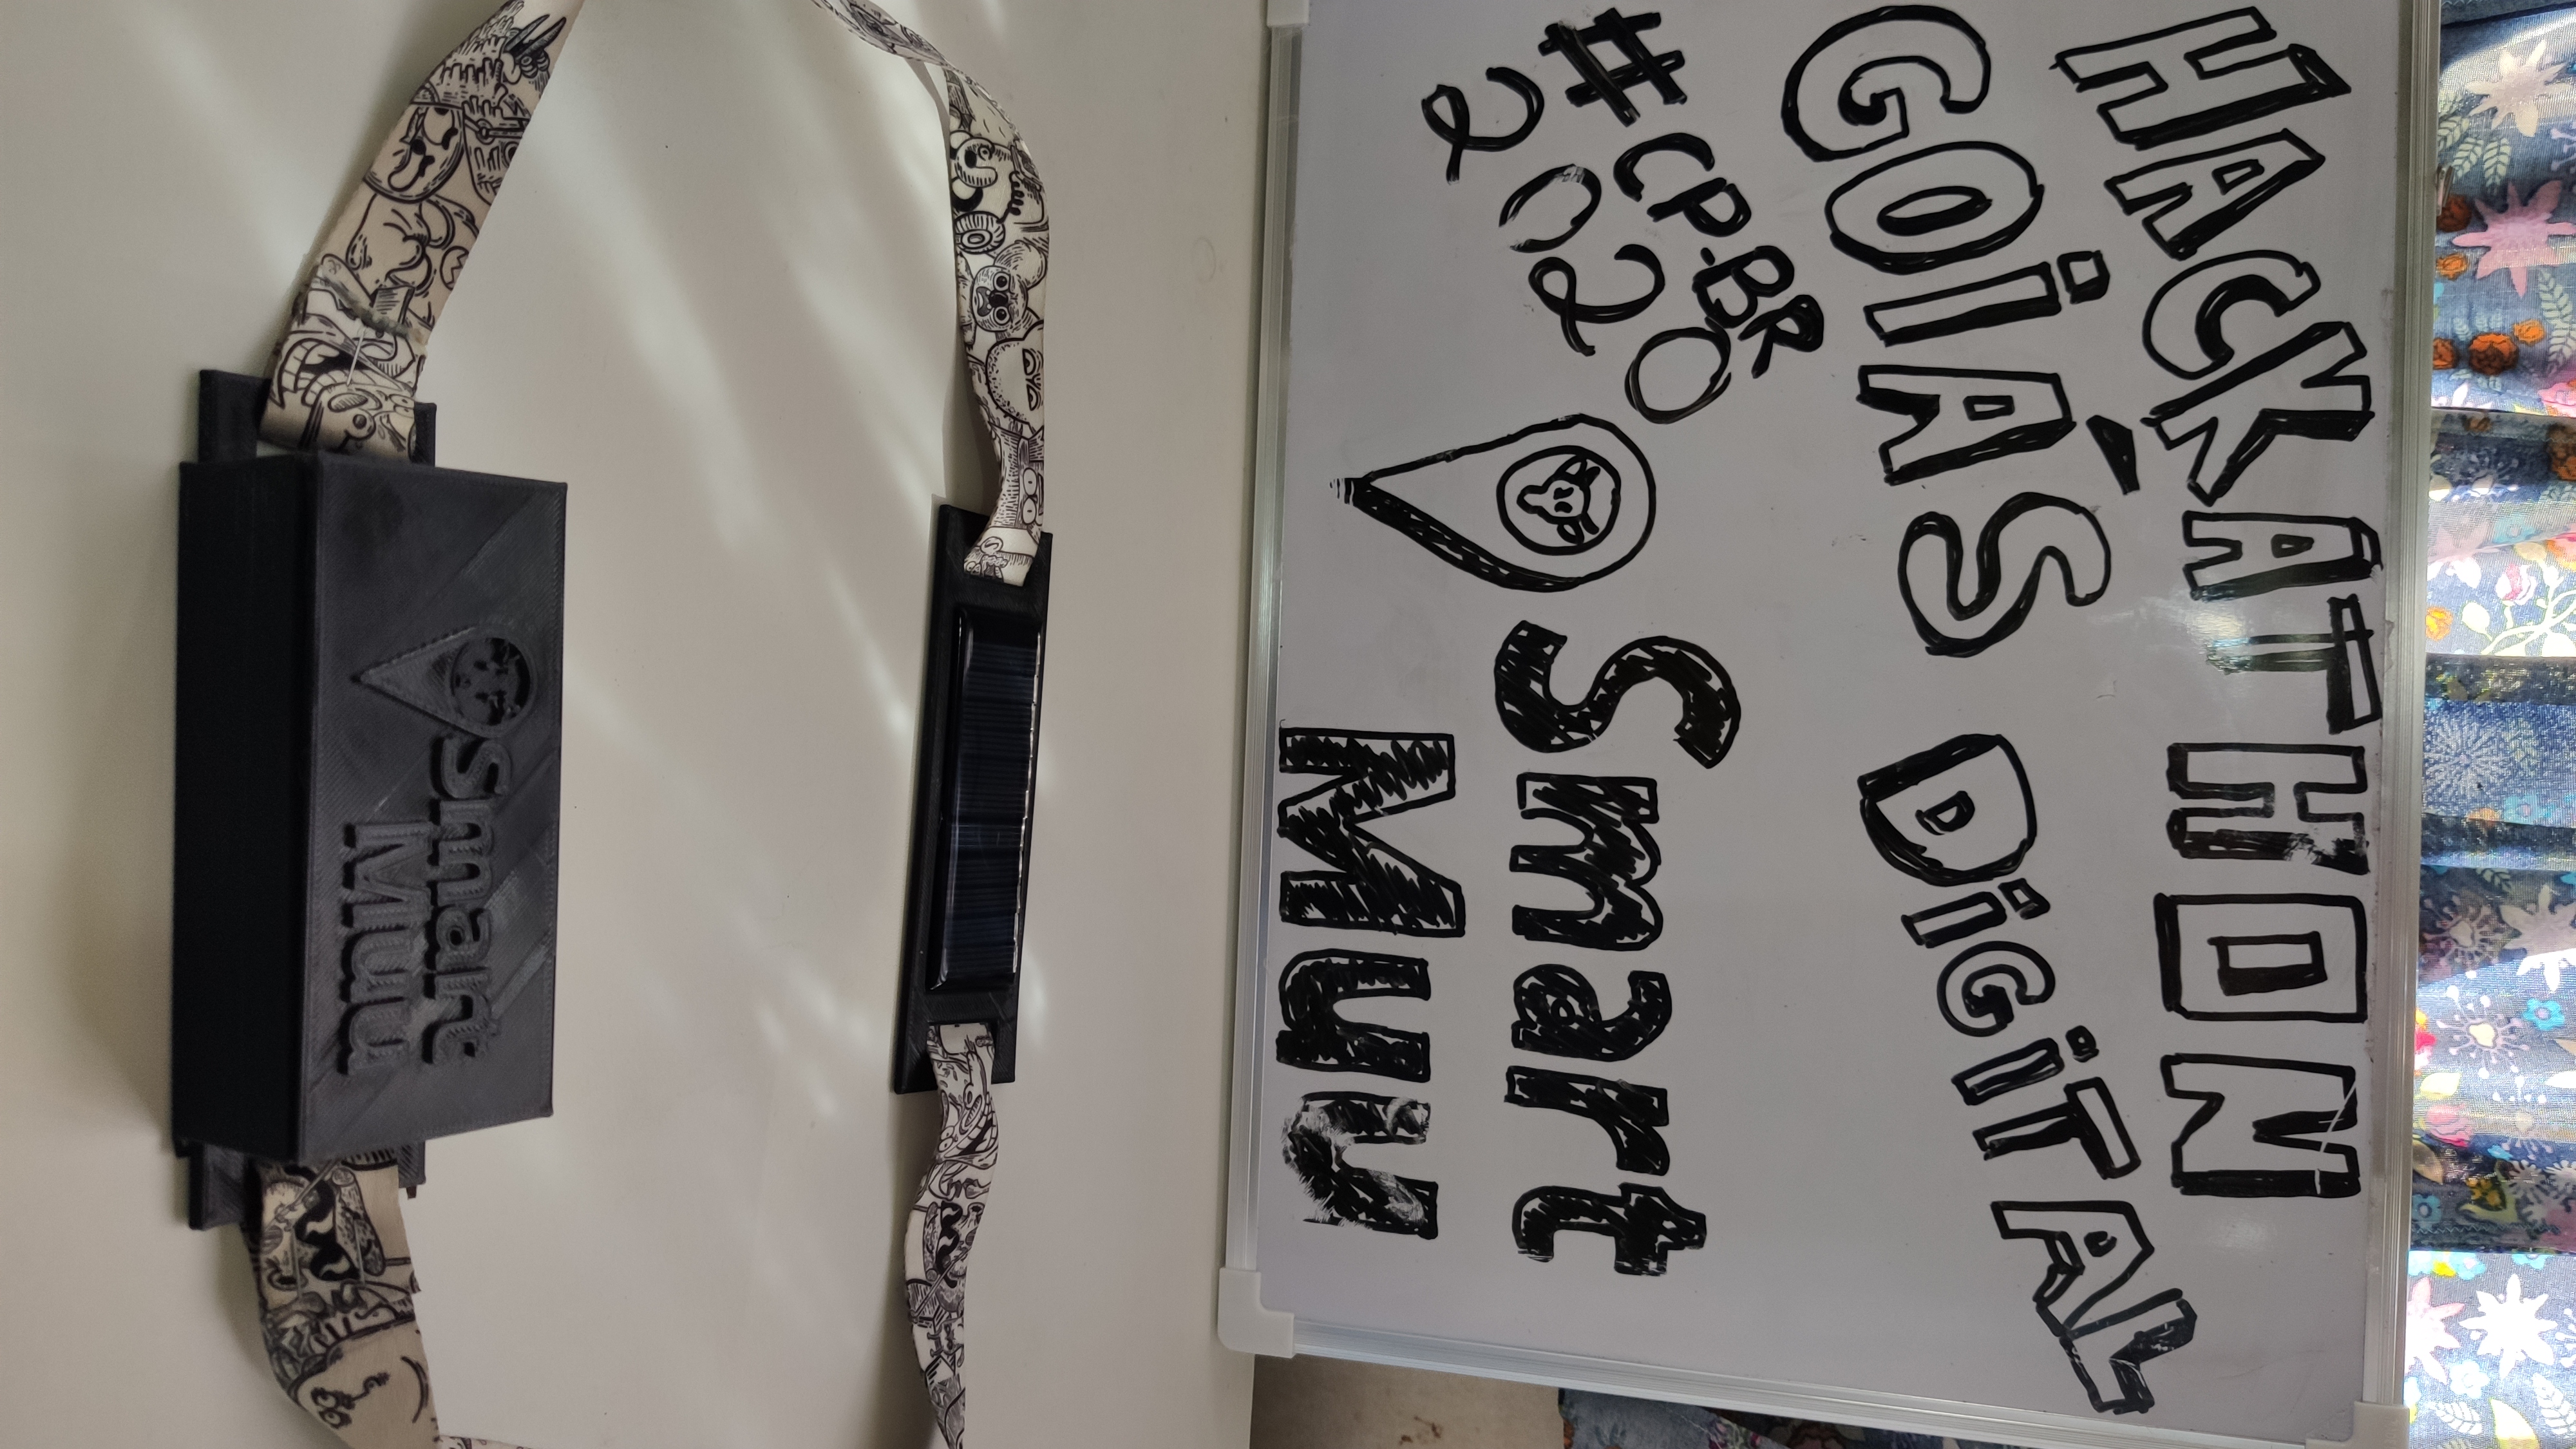 HACKATHON
GOiÁS DiGiTAL
#CP-BR
2020
Smart
Muu
Smart
Muu